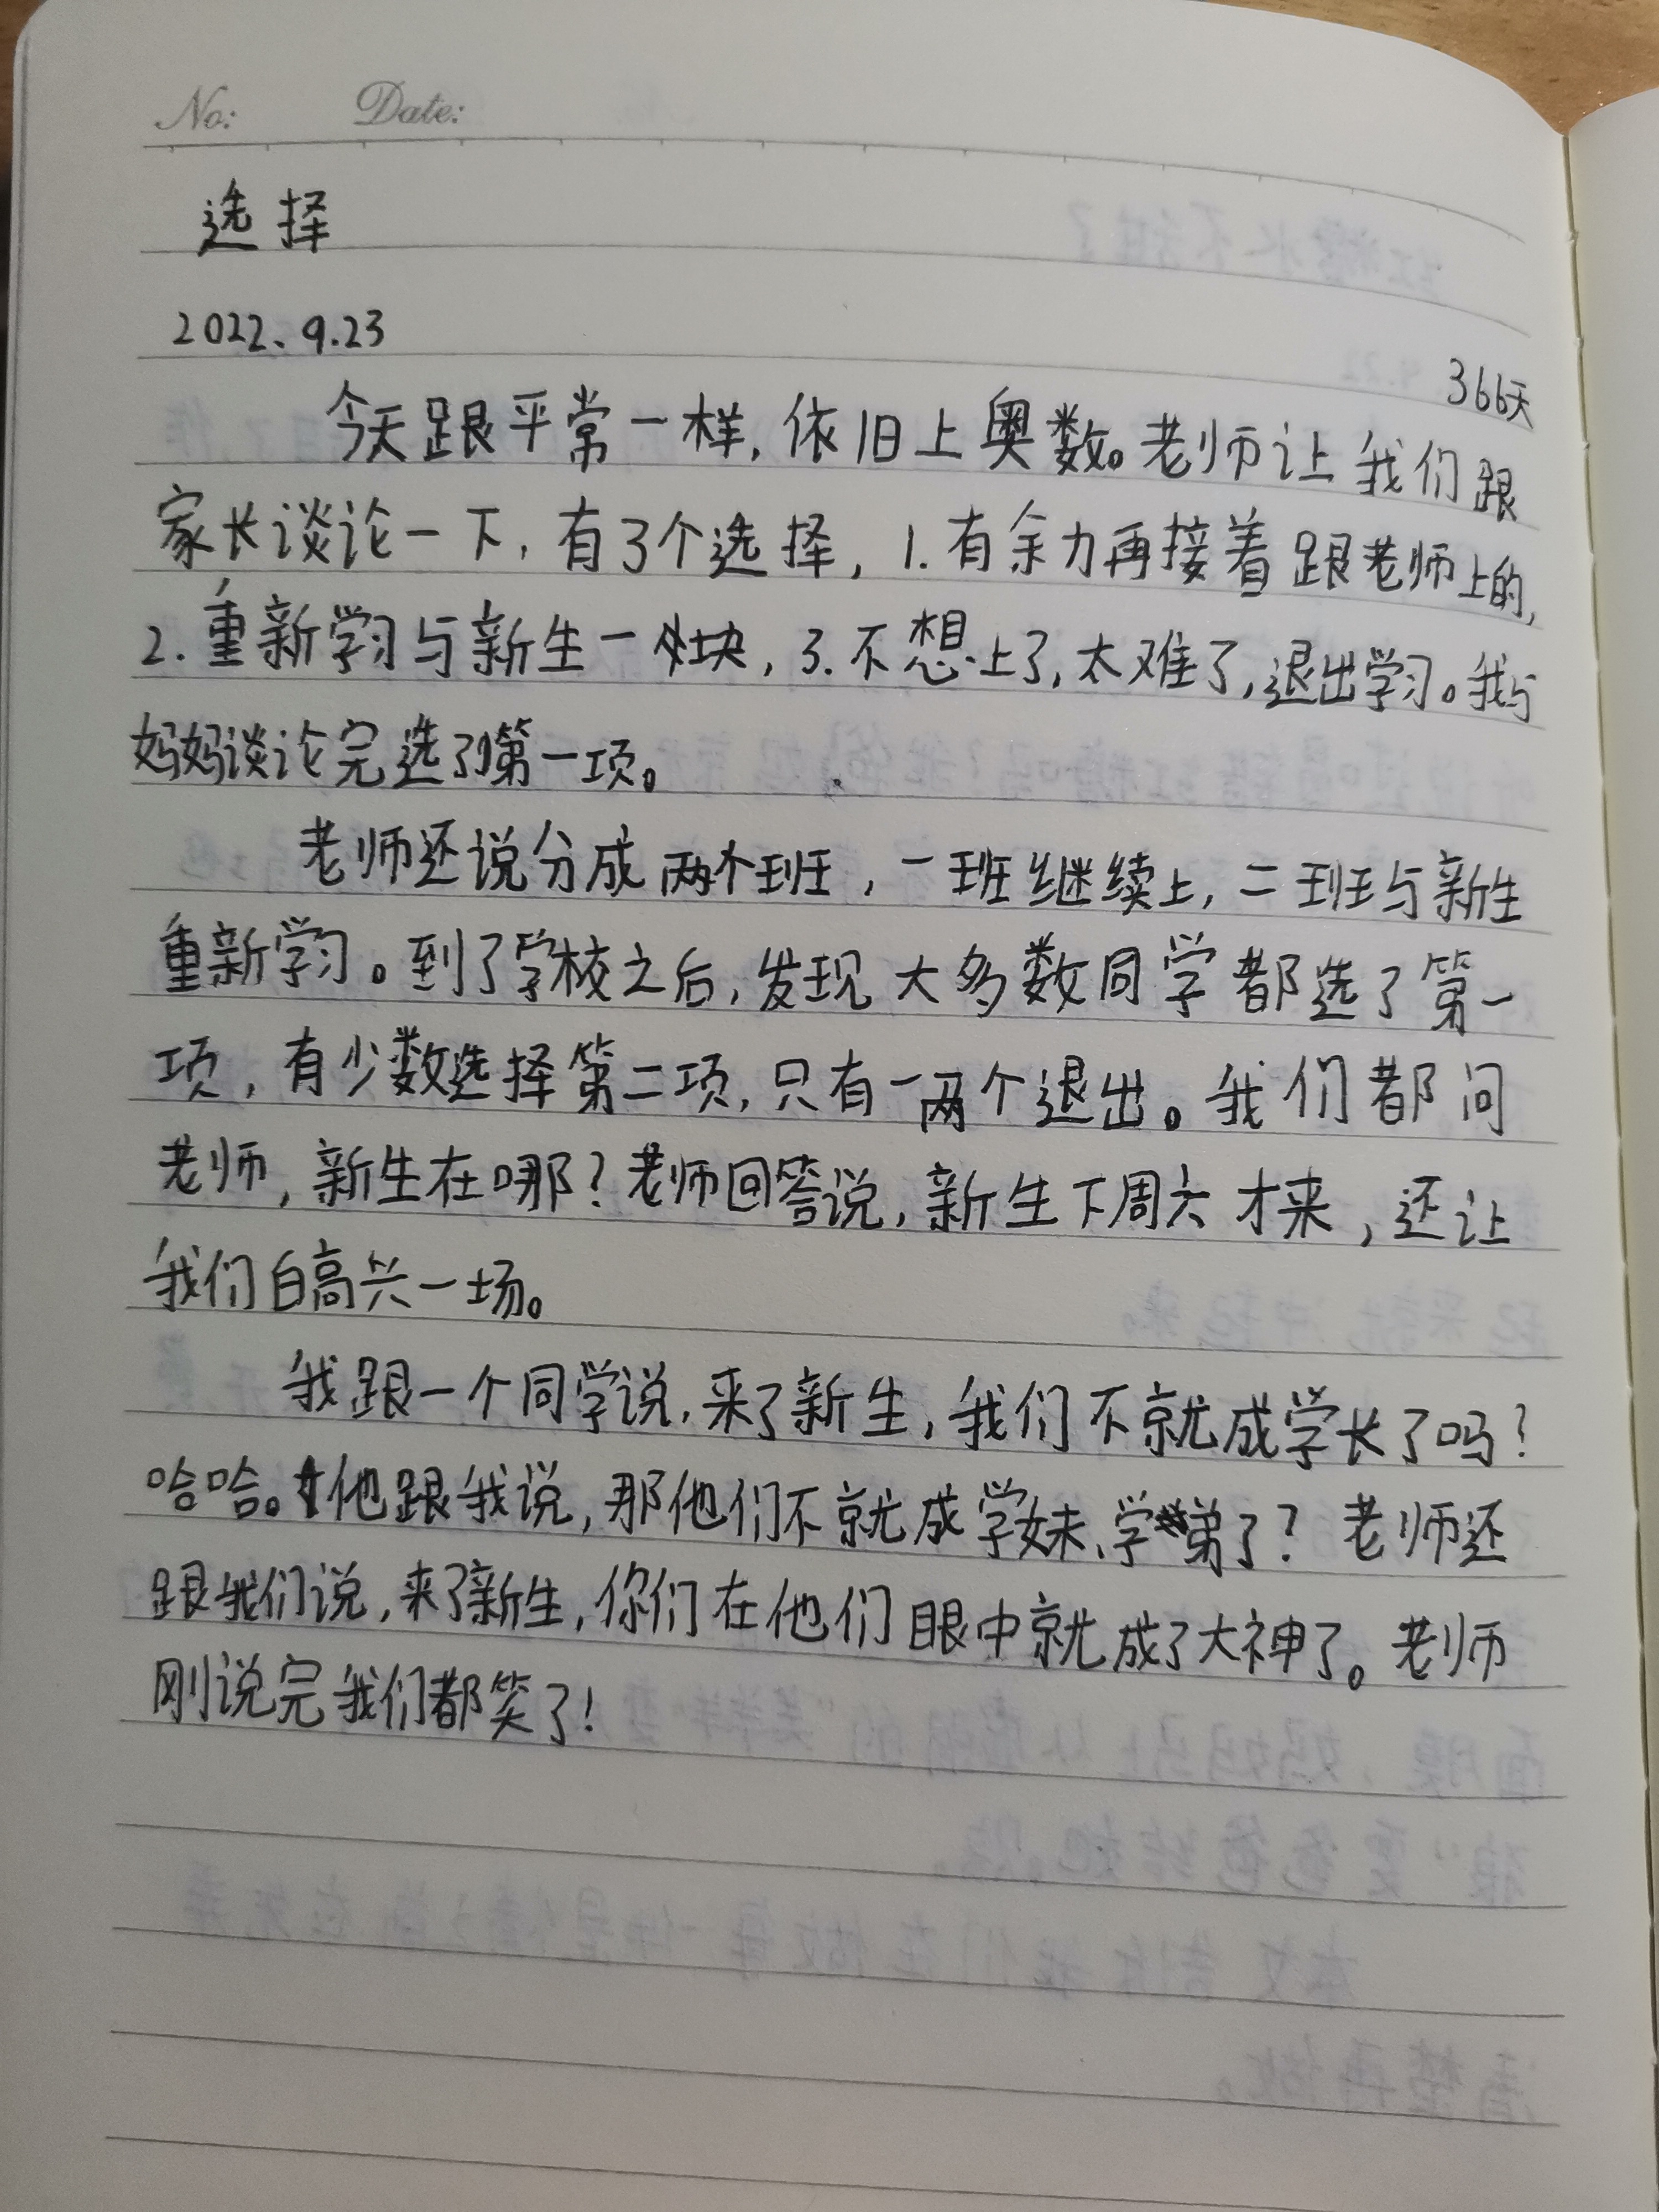 No: Date:
选择
2022、9.23
366天
今天跟平常一样，依旧上奥数。老师让我们跟
家长谈论一下，有3个选择，1.有余力再接着跟老师上的，
2.重新学习与新生一块，3.不想上了，太难了，退出学习。我与
妈妈谈论完选了第一项。
老师还说分成两个班，一班继续上，二班与新生
重新学习。到了学校之后，发现大多数同学都选了第一
项，有少数选择第二项，只有一两个退出。我们都问
老师，新生在哪？老师回答说，新生下周六才来，还让
我们白高兴一场。
我跟一个同学说，来了新生，我们不就成学长了吗？
哈哈。他跟我说，那他们不就成学妹、学弟了？老师还
跟我们说，来了新生，你们在他们眼中就成了大神了。老师
刚说完我们都笑了！